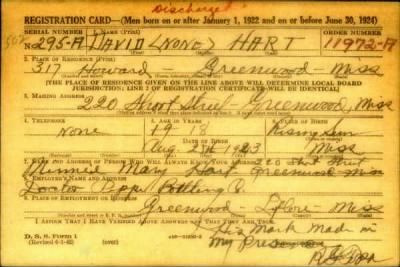 Discharged
REGISTRATION CARD—(Men born on or after January 1, 1922 and on or before June 30, 1924)
SERIAL NUMBER 1. NAME (Print) ORDER NUMBER
502 N 295-A DAVID (NONE) HART 11972-A
2. PLACE OF RESIDENCE (Print)
317 Howard Greenwood - Miss
[THE PLACE OF RESIDENCE GIVEN ON THE LINE ABOVE WILL DETERMINE LOCAL BOARD JURISDICTION; LINE 2 OF REGISTRATION CERTIFICATE WILL BE IDENTICAL]
3. MAILING ADDRESS
220 Short Street - Greenwood, Miss
4. TELEPHONE 5. AGE IN YEARS 6. PLACE OF BIRTH
None 19 - 18 Rising Sun
DATE OF BIRTH
Aug 28th 1923 Miss
7. NAME AND ADDRESS OF PERSON WHO WILL ALWAYS KNOW YOUR ADDRESS 220 Short Street
Minnie Mary Hart Greenwood Miss
8. EMPLOYER'S NAME AND ADDRESS
Bottling Co.
9. PLACE OF EMPLOYMENT OR BUSINESS
Greenwood - Leflore - Miss
I AFFIRM THAT I HAVE VERIFIED ABOVE ANSWERS AND THAT THEY ARE TRUE.
D. S. S. Form 1 His Mark Made in
(Revised 6-1-42) My Presence